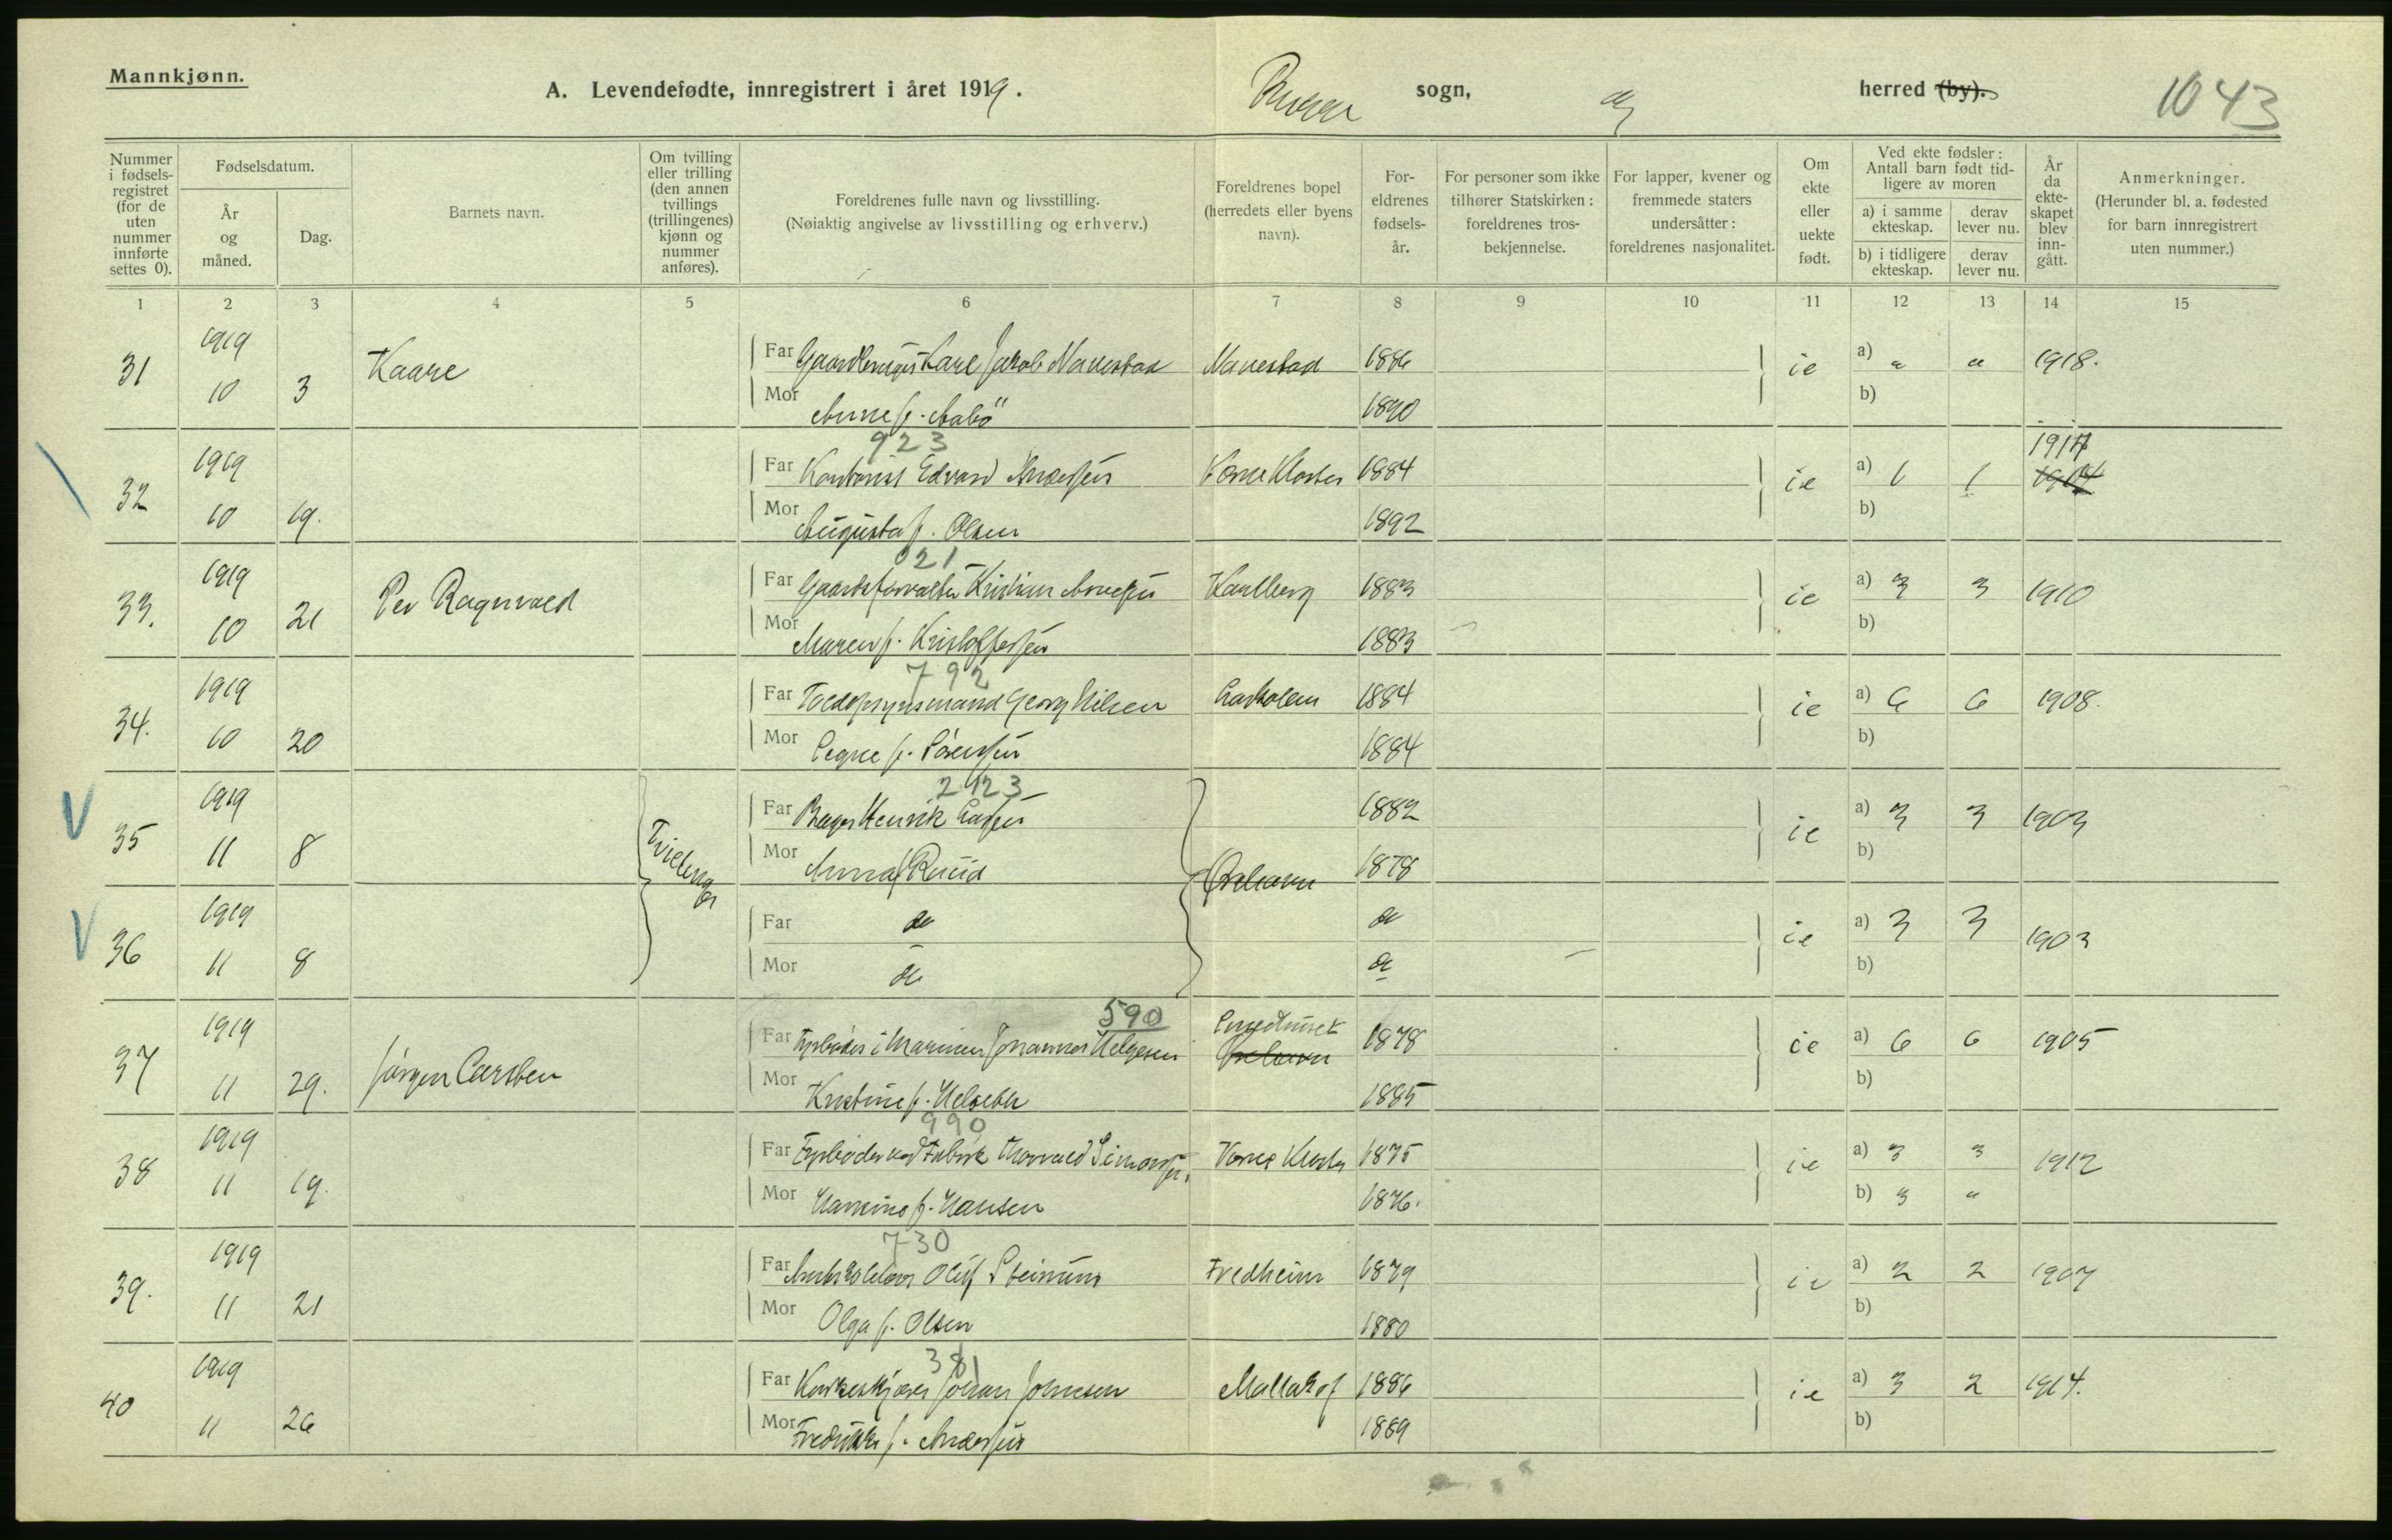 Mannkjønn.
A. Levendefødte, innregistrert i året 1919. sogn, herred (by).
1043
Nummer i fødsels-registret (for de uten nummer innførte settes 0).
Fødselsdatum.
År og måned.
Dag.
Barnets navn.
Om tvilling eller trilling (den annen tvillings (trillingenes) kjønn og nummer anføres).
Foreldrenes fulle navn og livsstilling.
(Nøiaktig angivelse av livsstilling og erhverv.)
Foreldrenes bopel (herredets eller byens navn).
For-eldrenes fødsels-år.
For personer som ikke tilhører Statskirken: foreldrenes tros-bekjennelse.
For lapper, kvener og fremmede staters undersåtter: foreldrenes nasjonalitet.
Om ekte eller uekte født.
Ved ekte fødsler: Antall barn født tid-ligere av moren
a) i samme ekteskap.
derav lever nu.
b) i tidligere ekteskap.
derav lever nu.
År da ekte-skapet blev inn-gått.
Anmerkninger.
(Herunder bl. a. fødested for barn innregistrert uten nummer.)
1 2 3 4 5 6 7 8 9 10 11 12 13 14 15
31 1919 Kaare Far Gaardbruger Karl Jakob Navestad Navestad 1886 ie a) " " 1918.
10 3 Mor Anne f. 1890 b)
923
32 1919 Far Kontorist Edvard Andersen Værne Kloster 1884 ie a) 1 1 1917 1904
10 19. Mor Augusta f. Olsen 1892 b)
021
33. 1919 Per Ragnvald Far Gaardsforvalter Kristian Karlberg 1883 ie a) 3 3 1910
10 21 Mor Maren f. Kristoffersen 1883 b)
792
34. 1919 Far Toldopsynsmand Georg Nilsen 1884 ie a) 6 6 1908.
10 20 Mor Signe f. Sørensen 1884 b)
2423
35 1919 Tvillinger Far Bager Henrik 1882 ie a) 3 3 1903
11 8 Mor Anna f. Ruud 1878 b)
36 1919 Far do do ie a) 3 3 1903
11 8 Mor do do b)
590
37 1919 Jörgen Carsten Far Fyrböder i Marinen Johannes Helgesen Smedhuset 1878 ie a) 6 6 1905
11 29. Mor Kristine f. Helseth 1885 b)
990
38 1919 Far Fyrböder ved Fabrik Thorvald Simonsen, Værne Kloster 1875 ie a) 3 3 1912
11 19. Mor f. Hansen 1876. b) 3 "
730
39. 1919 Far Oluf Fredheim 1879 ie a) 2 2 1907
11 21 Mor Olga f. Olsen 1880 b)
381
40 1919 Far Johan Johnsen Mallakof 1886 ie a) 3 2 1914.
11 26 Mor Fredrikke f. Andersen 1889 b)